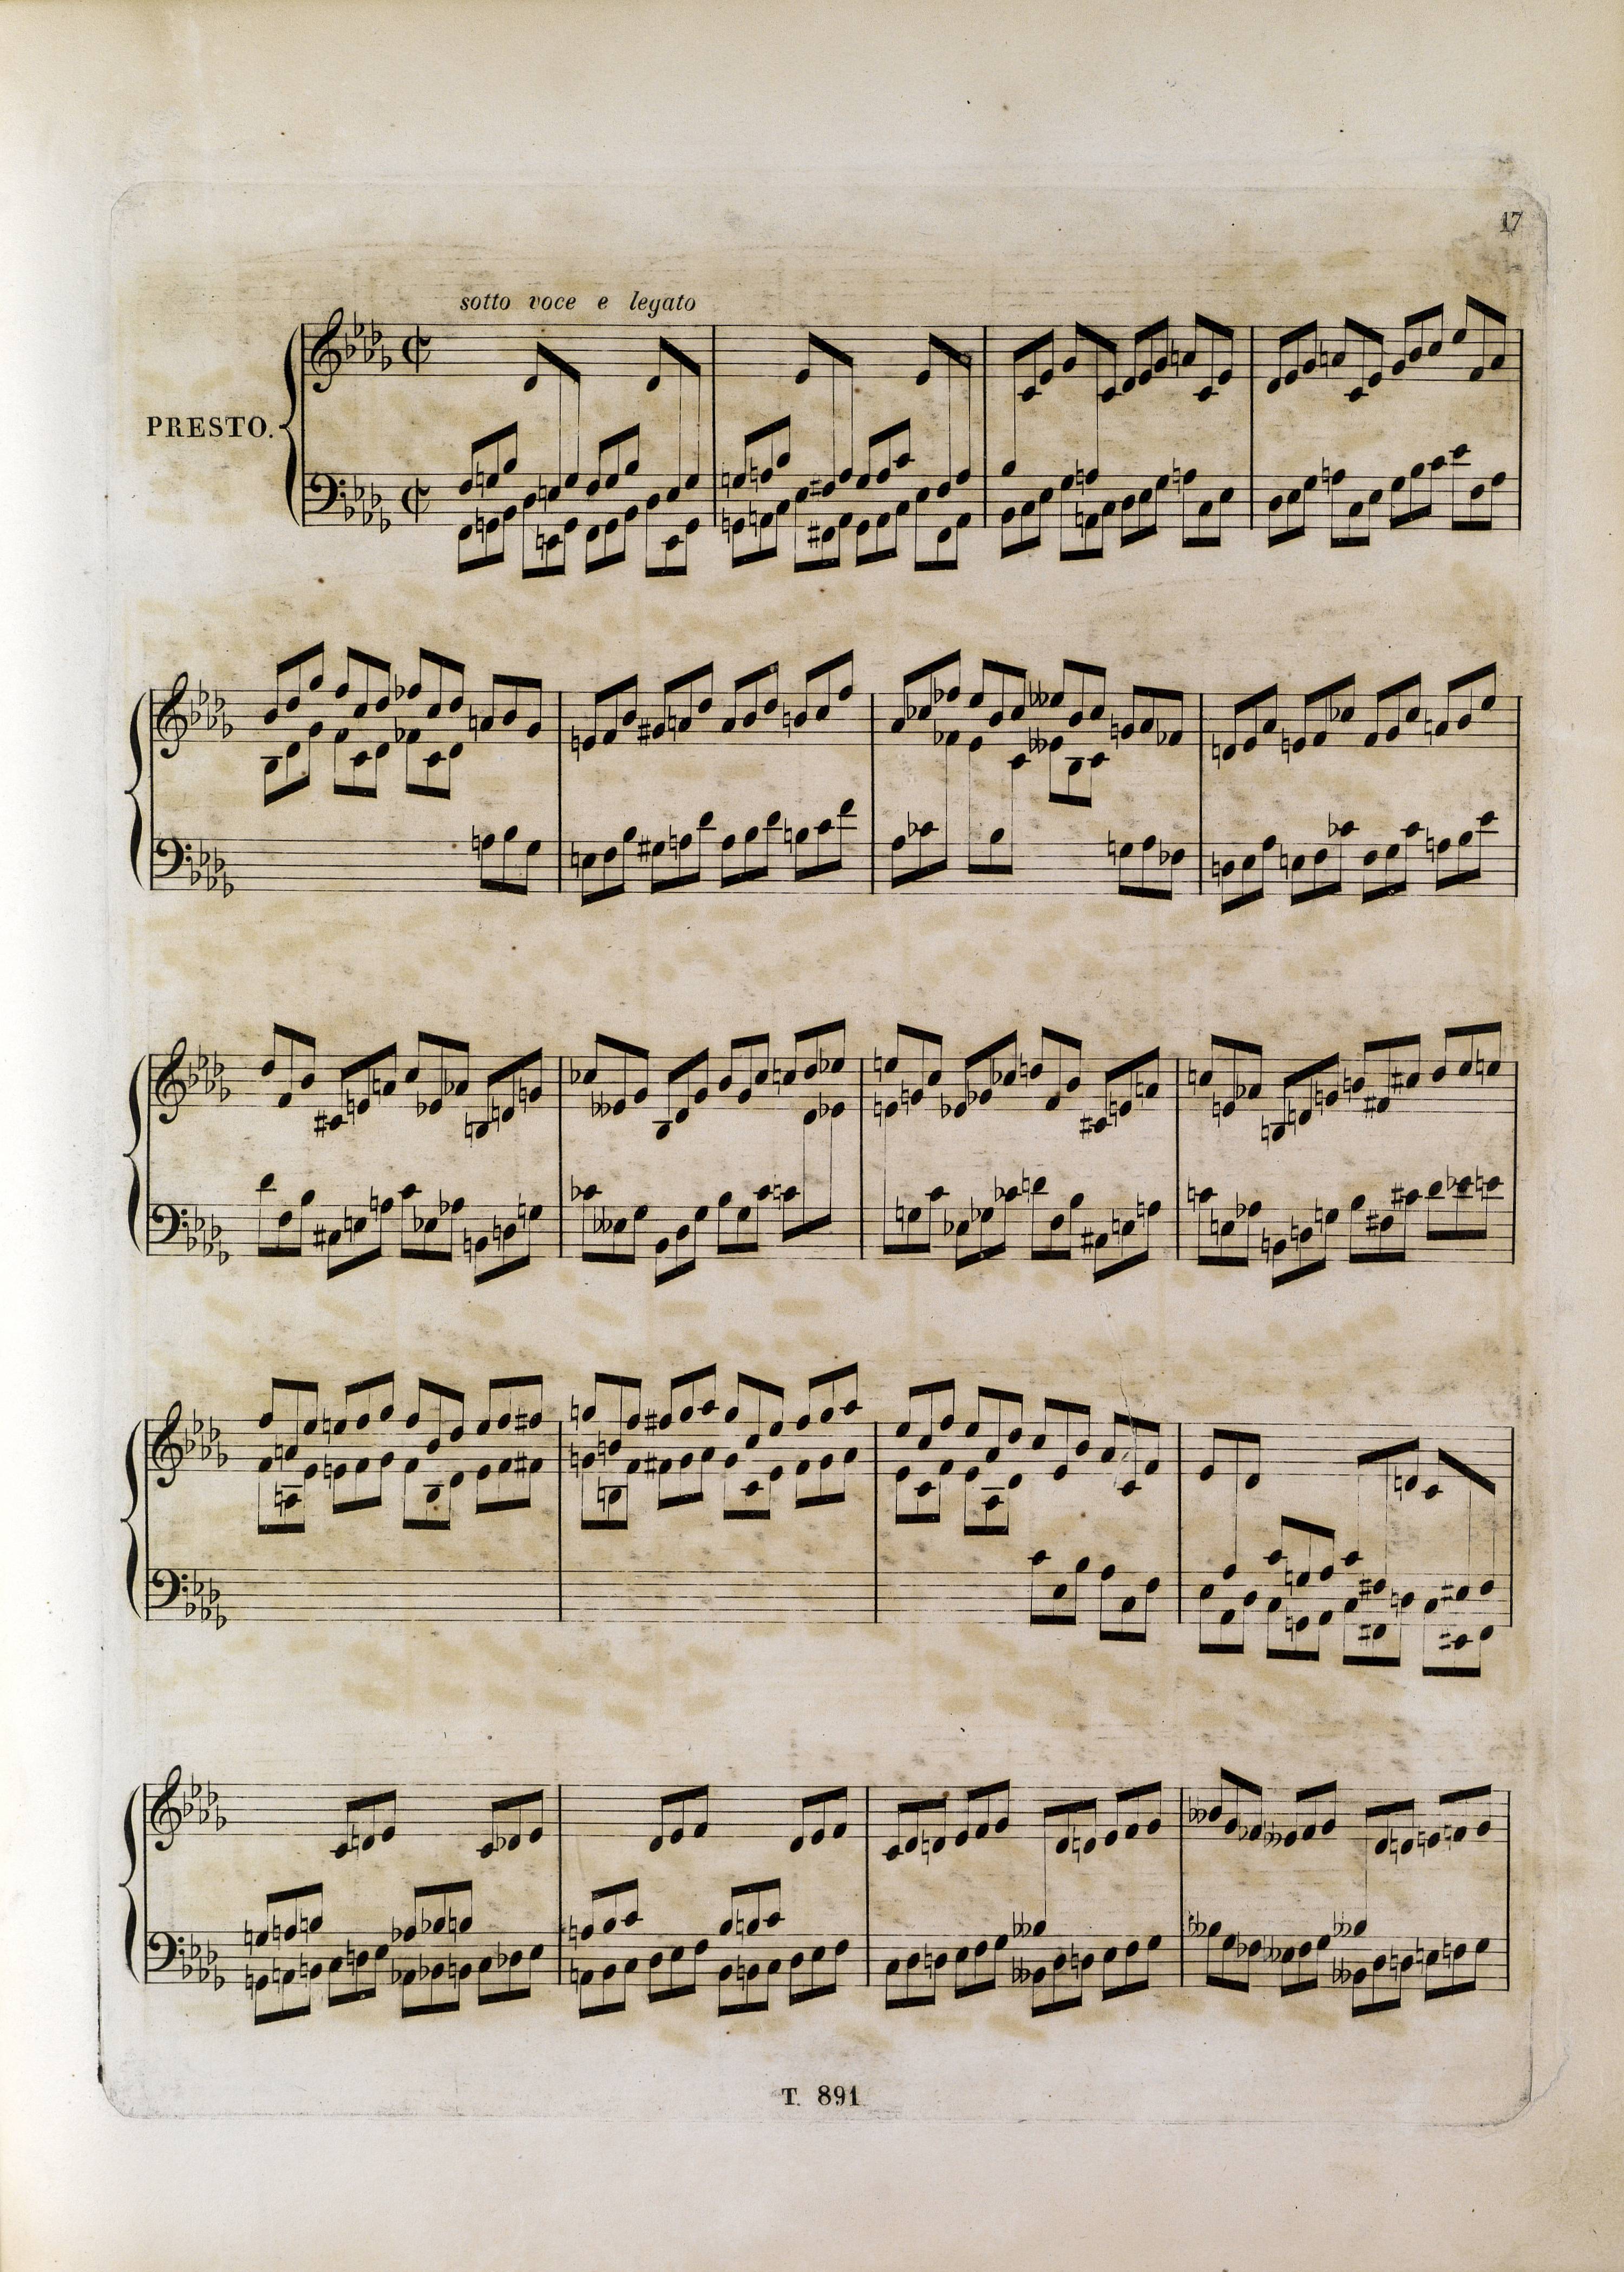 17
sotto voce e legato
PRESTO.
T. 891